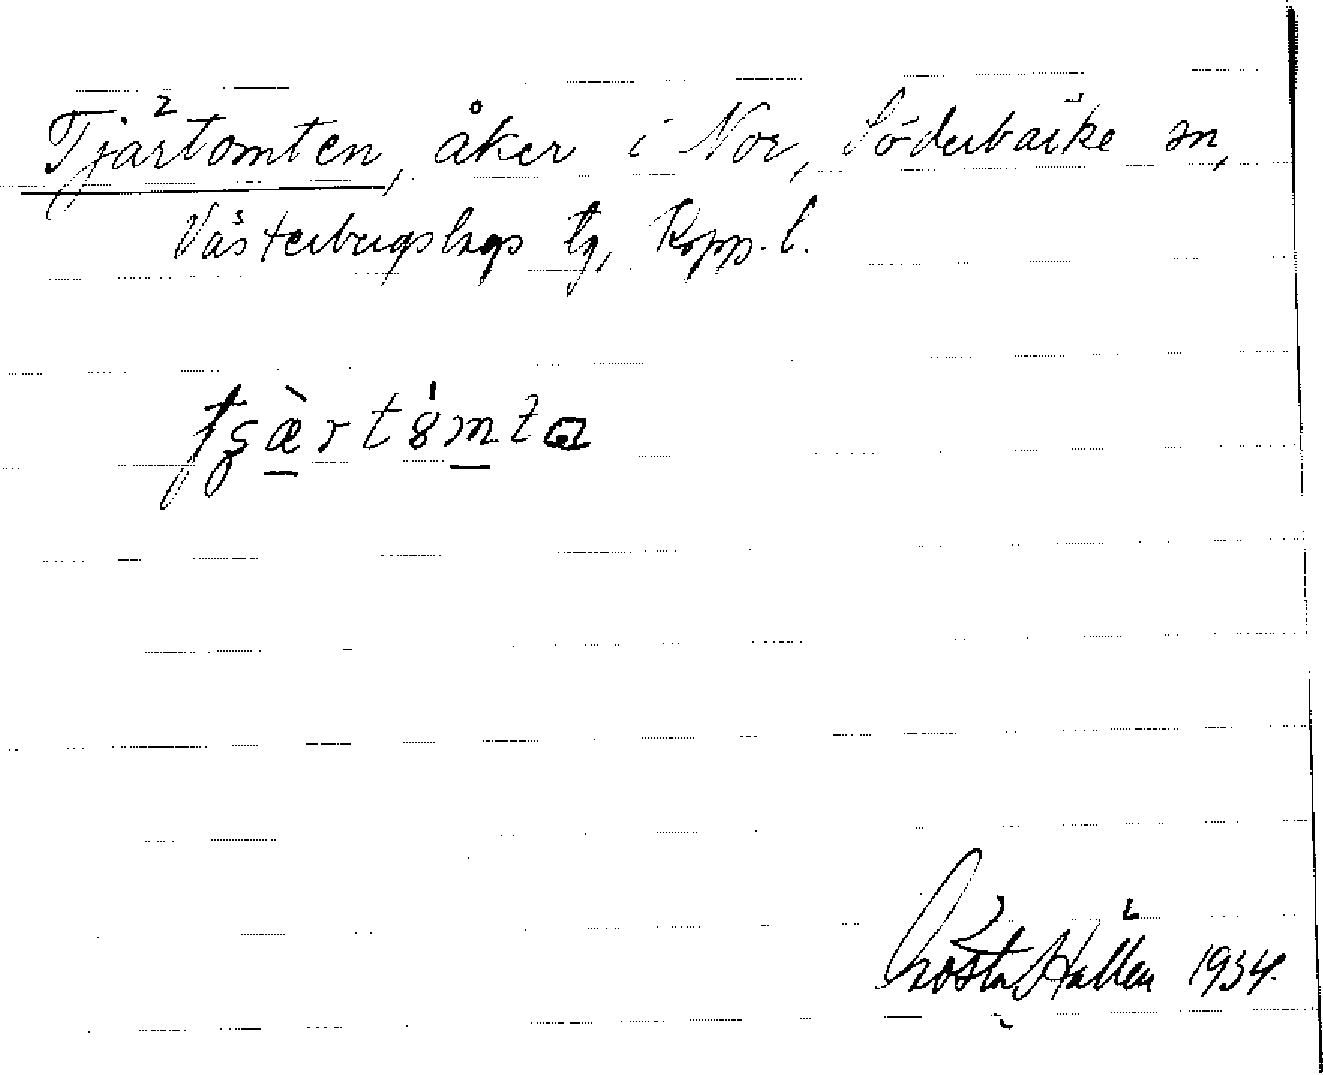 Tjärtomten, åker i Nor, Söderbärke sn,
Västerbergslags tg, Kopp. l.
Gösta Hallén 1934.